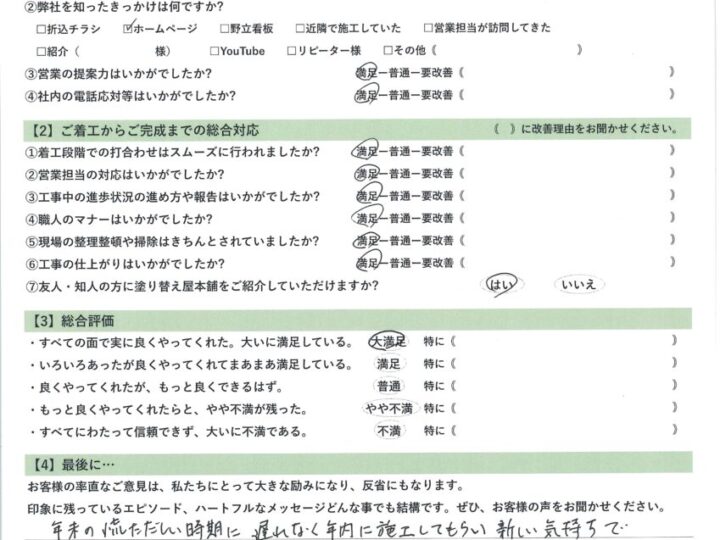 ②弊社を知ったきっかけは何ですか?
□折込チラシ ☑ホームページ □野立看板 □近隣で施工していた □営業担当が訪問してきた
□紹介( 様) □YouTube □リピーター様 □その他《 》
③営業の提案力はいかがでしたか? 満足ー普通ー要改善《 》
④社内の電話応対等はいかがでしたか? 満足ー普通ー要改善《 》
【2】ご着工からご完成までの総合対応 《 》に改善理由をお聞かせください。
①着工段階での打合わせはスムーズに行われましたか? 満足ー普通ー要改善《 》
②営業担当の対応はいかがでしたか? 満足ー普通ー要改善《 》
③工事中の進歩状況の進め方や報告はいかがでしたか? 満足ー普通ー要改善《 》
④職人のマナーはいかがでしたか? 満足ー普通ー要改善《 》
⑤現場の整理整頓や掃除はきちんとされていましたか? 満足ー普通ー要改善《 》
⑥工事の仕上がりはいかがでしたか? 満足ー普通ー要改善《 》
⑦友人・知人の方に塗り替え屋本舗をご紹介していただけますか? はい いいえ
【3】総合評価
・すべての面で実に良くやってくれた。大いに満足している。 大満足 特に《 》
・いろいろあったが良くやってくれてまあまあ満足している。 満足 特に《 》
・良くやってくれたが、もっと良くできるはず。 普通 特に《 》
・もっと良くやってくれたらと、やや不満が残った。 やや不満 特に《 》
・すべてにわたって信頼できず、大いに不満である。 不満 特に《 》
【4】最後に…
お客様の率直なご意見は、私たちにとって大きな励みになり、反省にもなります。
印象に残っているエピソード、ハートフルなメッセージどんな事でも結構です。ぜひ、お客様の声をお聞かせください。
年末の慌ただしい時期に 遅れなく年内に施工してもらい 新しい気持ちで